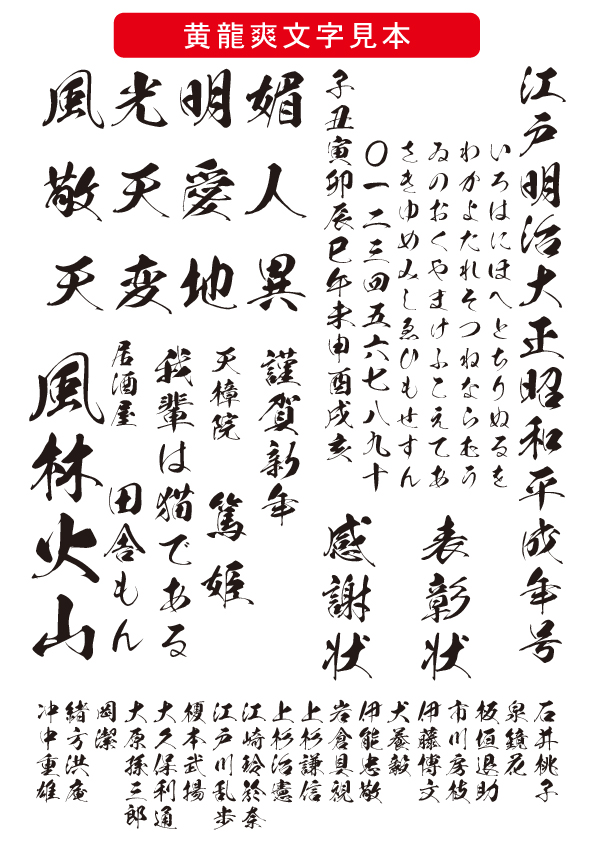 黄龍爽文字見本
江戸明治大正昭和平成年号
いろはにほへとちりぬるを
わかよたれそつねならむう
ゐのおくやまけふこえてあ
さきゆめみしゑひもせすん
〇一二三四五六七八九十
子丑寅卯辰巳午未申酉戌亥
表彰状
感謝状
媚人異
明愛地
光天変
風敬天
謹賀新年
天樟院 篤姫
我輩は猫である
居酒屋 田舎もん
風林火山
石井桃子
泉鏡花
板垣退助
市川房枝
伊藤博文
犬養毅
伊能忠敬
岩倉具視
上杉謙信
上杉治憲
江崎玲於奈
江戸川乱歩
榎本武揚
大久保利通
大原孫三郎
岡潔
緒方洪庵
沖中重雄